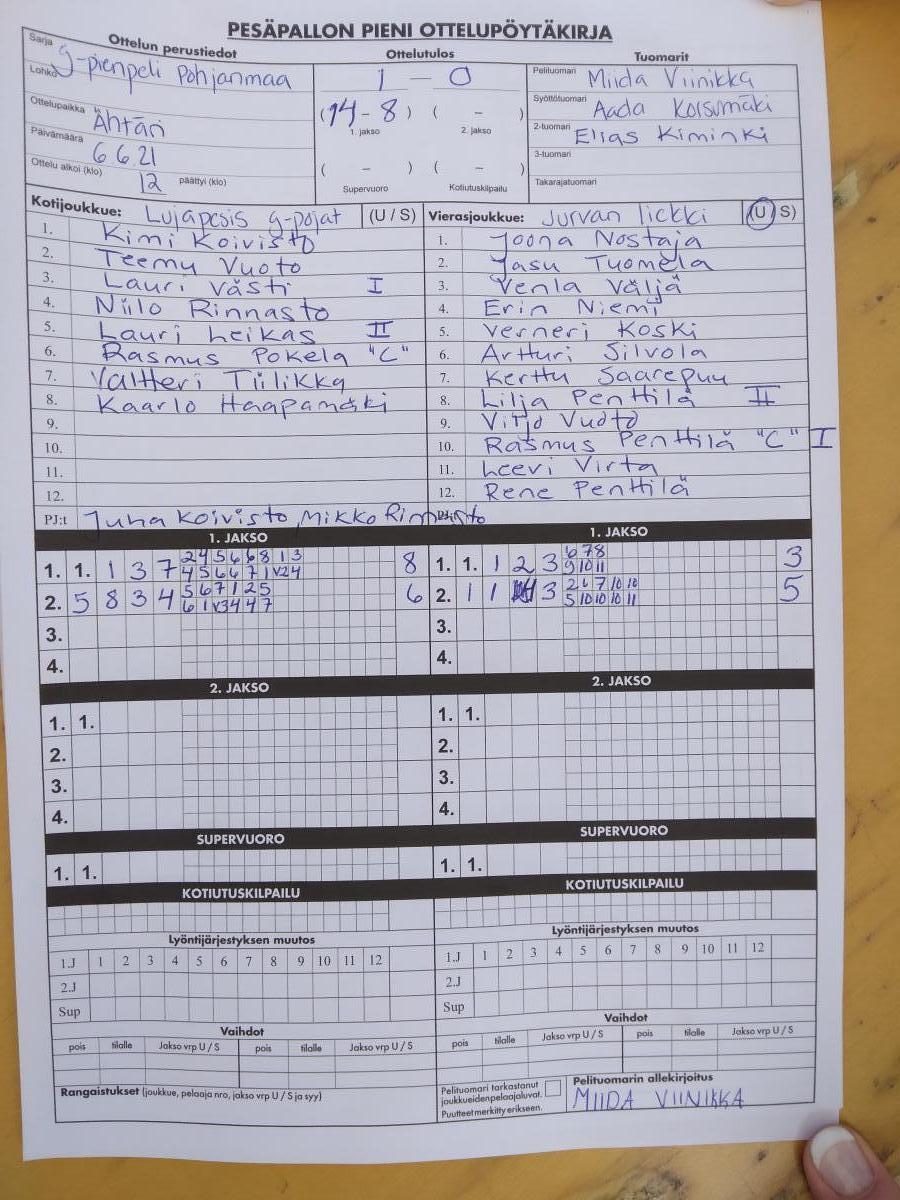 PESÄPALLON PIENI OTTELUPÖYTÄKIRJA
Sarja Ottelun perustiedot
g-pienpeli Pohjanmaa
Lohko
Ottelupaikka Ähtäri
Päivämäärä 6.6.21
Ottelu alkoi (klo) 12 päättyi (klo)
Ottelutulos
1 — 0
(14-8) ( - )
1. jakso 2. jakso
( - ) ( - )
Supervuoro Kotiutuskilpailu
Tuomarit
Pelituomari Miida Viinikka
Syöttötuomari Aada Korsumäki
2-tuomari Elias Kiminki
3-tuomari
Takarajatuomari
Kotijoukkue: Lujapesis g-pojat (U / S)
1. Kimi Koivisto
2. Teemu Vuoto
3. Lauri Västi I
4. Niilo Rinnasto
5. Lauri Leikas II
6. Rasmus Pokela "C"
7. Valtteri Tiilikka
8. Kaarlo Haapamäki
9.
10.
11.
12.
PJ:t Juha Koivisto, Mikko Rinnasto
Vierasjoukkue: Jurvan liekki (U S)
1. Joona Nostaja
2. Jasu Tuomela
3. Venla Väljä
4. Erin Niemi
5. Verneri Koski
6. Artturi Silvola
7. Kerttu Saarepuu
8. Lilja Penttilä II
9. Virjo Vuoto
10. Rasmus Penttilä "C" I
11. Leevi Virta
12. Rene Penttilä
1. JAKSO
2 4 5 6 6 8 1 3
1. 1. 1 3 7 4 5 6 6 7 1 V2 4 8
5 6 7 1 2 5
2. 5 8 3 4 6 1 V3 4 4 7 6
3.
4.
1. JAKSO
6 7 8
1. 1. 1 2 3 9 10 11 3
2 6 7 10 10
2. 1 1 3 5 10 10 10 11 5
3.
4.
2. JAKSO
1. 1.
2.
3.
4.
2. JAKSO
1. 1.
2.
3.
4.
SUPERVUORO
1. 1.
SUPERVUORO
1. 1.
KOTIUTUSKILPAILU
KOTIUTUSKILPAILU
Lyöntijärjestyksen muutos
1.J 1 2 3 4 5 6 7 8 9 10 11 12
2.J
Sup
Lyöntijärjestyksen muutos
1.J 1 2 3 4 5 6 7 8 9 10 11 12
2.J
Sup
Vaihdot
pois tilalle Jakso vrp U / S pois tilalle Jakso vrp U / S
Vaihdot
pois tilalle Jakso vrp U / S pois tilalle Jakso vrp U / S
Rangaistukset (joukkue, pelaaja nro, jakso vrp U / S ja syy)
Pelituomari tarkastanut
joukkueidenpelaajaluvat.
Puutteet merkitty erikseen.
Pelituomarin allekirjoitus
MIIDA VIINIKKA